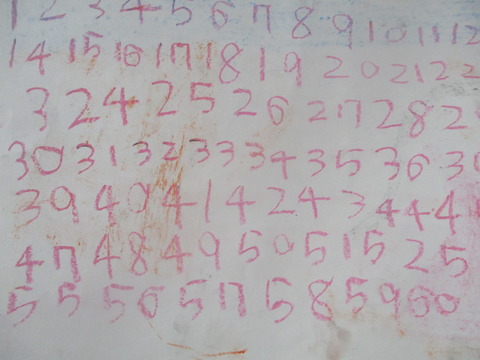 1 2 3 4 5 6 7 8 9 10 11 12
14 15 16 17 18 19 20 21 22
3 24 25 26 27 28 2
30 31 32 33 34 35 36 3
39 40 41 42 43 44 4
47 48 49 50 51 52 5
55 56 57 58 59 60